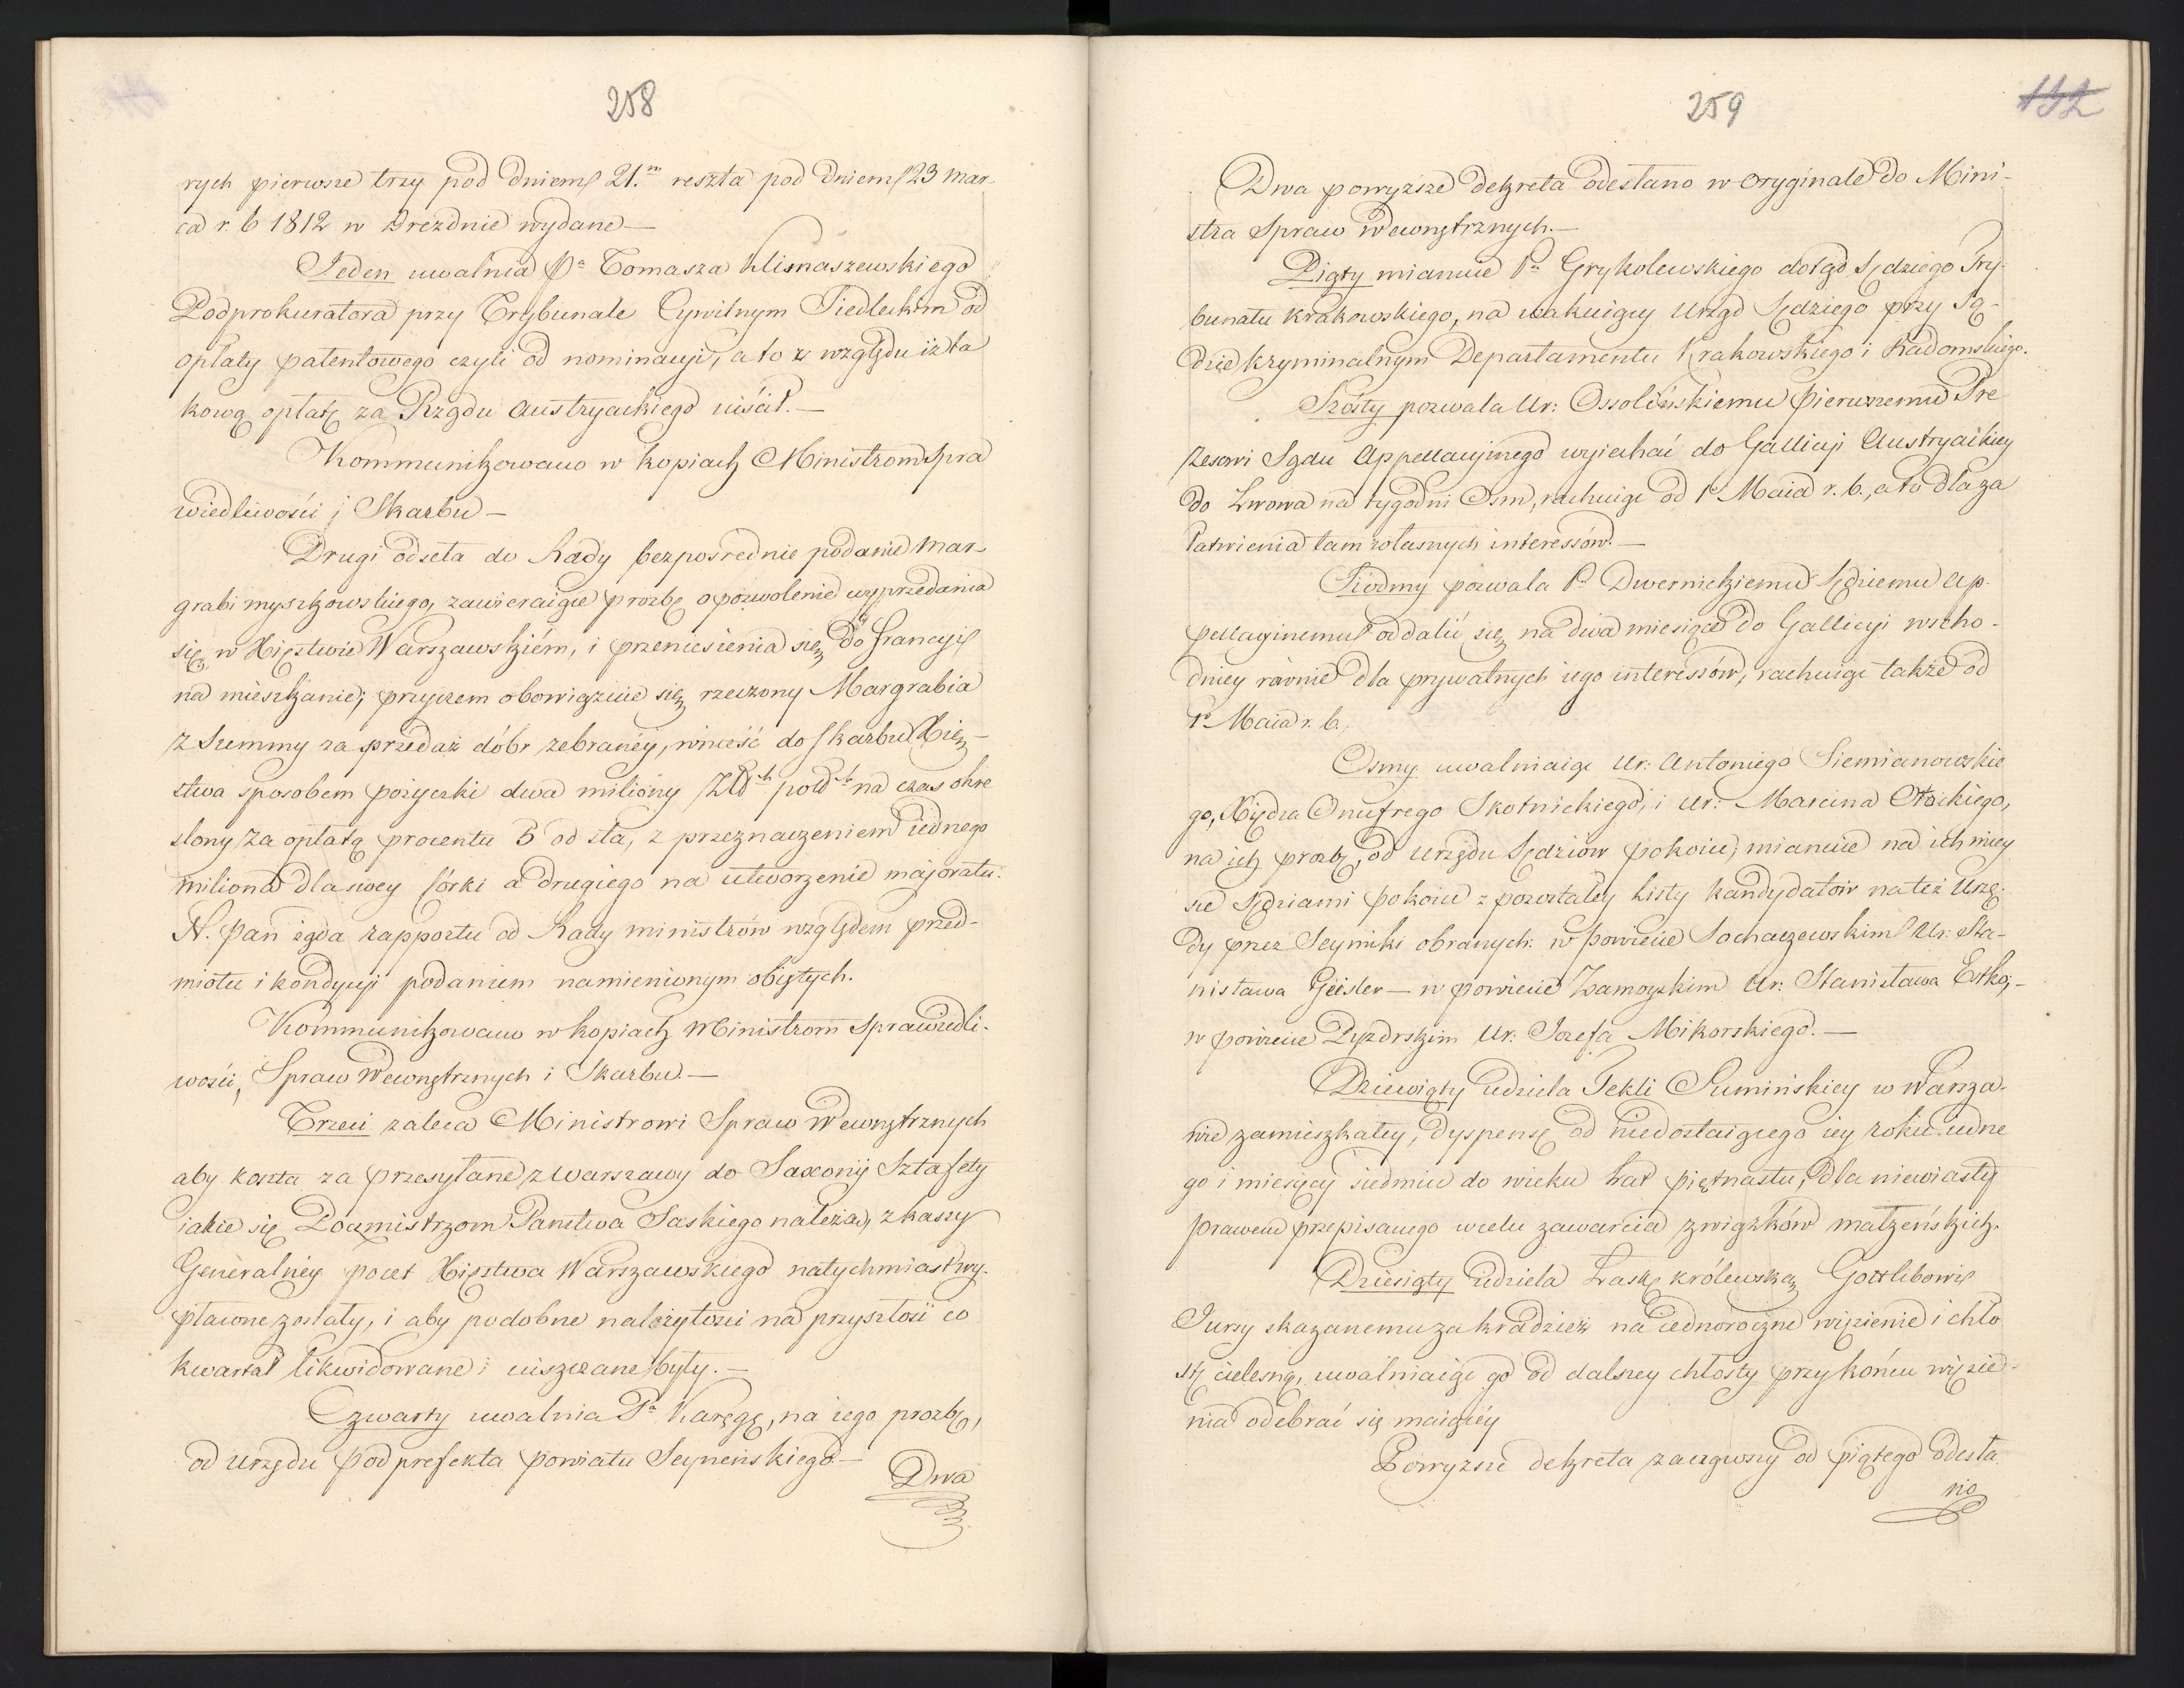 258
rych pierwsze trzy pod dniem 21.m reszta pod dniem 23 mar-
ca r. b 1812 w Dreźdnie wydane —
Jeden uwalnia Pa Tomasza Klimaszewskiego
Podprokuratora przy Trybunale Cywilnym Siedleckim od
opłaty patentowego czyli od nominacyi, a to z względu iż ta
kową opłatę za Rządu Austryackiego uiścił. —
Kommunikowano w kopiach Ministrom Spra
wiedliwości i Skarbu —
Drugi odseła do Rady bezpośrednie podanie Mar-
grabi myszkowskiego, zawieraiące prozbę o pozwolenie wyprzedania
się w Xięstwie Warszawskiém, i przeniesienia się do Francyi
na mieszkanie; przyczem obowiązuie się rzeczony Margrabia
z Summy za przedaż dóbr zebranéy, wnieść do skarbu Xię-
stwa sposobem pożyczki dwa miliony Złch polch na czas okre
slony za opłatą procentu 5 od sta, z przeznaczeniem iednego
miliona dla swey córki a drugiego na utworzenie majoratu.
N. Pan żąda rapportu od Rady ministrów względem przed-
miotu i kondycyi podaniem namienionym obiętych.
Kommunikowano w kopiach Ministrom Sprawiedli-
wości, Spraw Wewnętrznych i Skarbu. —
Trzeci zaleca Ministrowi Spraw Wewnętrznych
aby koszta za przesyłane z Warszawy do Saxonij Sztafety
iakie się Pocmistrzom Państwa Saskiego należą, z kassy
Generalnéy poczt Xięstwa Warszawskiego natychmiast wy-
płacone zostały, i aby podobne należytości na przyszłość co
kwartał likwidowane i uiszczane były. —
Czwarty uwalnia Pa Karęgę, na iego prozbę,
od urzędu podprefekta powiatu Seyneńskiego. —
Dwa
259
132
Dwa powyższe dekreta odesłano w oryginale do Mini-
stra Spraw Wewnętrznych. —
Piąty mianuie Pa Grykolewskiego dotąd Sędziego Try-
bunału Krakowskiego, na wakuiący Urząd Sędziego przy Są-
dzie kryminalnym Departamentu Krakowskiego i Radomskiego.
Szósty pozwala Ur: Ossolińskiemu pierwszemu Pre
zesowi Sądu Appellacyinego wyiechać do Gallicyi Austryackiey
do Lwowa na tygodni Osm, rachuiąc od 1o Maia r. b., a to dla za
łatwienia tam własnych interessów. —
Siódmy pozwala Pu Dwernickiemu Sędziemu Ap-
pellacyinemu oddalić się na dwa miesiące do Gallicyi wscho-
dniey równie dla prywatnych iego interessów, rachuiąc także od
1o Maia r. b.
Osmy uwalniaiąc Ur: Antoniego Siemianowskie
go, Xiędza Onufrego Skotnickiego, i Ur: Marcina Ołackiego,
na ich prozbę, od Urzędu Sędziów pokoiu, mianuie na ich miey
sce Sędziami pokoiu z pozostałéy Listy kandydatów na też Urzę-
dy przez Seymiki obranych: w powiecie Sochaczewskim Ur: Sta-
nisława Geisler — w powiecie Zamoyskim Ur: Stanisława Estkę, —
w powiecie Pyzdrskim Ur: Jozefa Mikorskiego. —
Dziewiąty udziela Tekli Sumińskiey w Warsza-
wie zamieszkałey, dyspensę od niedostaiącego iey roku iedne
go i miesięcy siedmiu do wieku Lat piętnastu, dla niewiasty
prawem przepisanego w celu zawarcia związków małżeńskich.
Dziesiąty udziela Łaskę królewską Gottlibowi
Jursy skazanemu za kradzież na iednoroczne więzienie i chło
stę cielesną, uwalniaiąc go od dalszey chłosty przy końcu więzie-
nia odebrać się maiącéy
Powyższe dekreta zacząwszy od piątego odesła
no